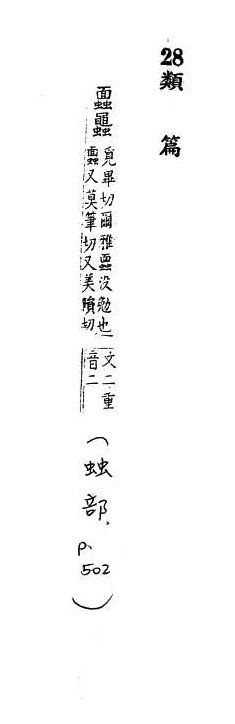 28
類篇
蠠
覓畢切爾雅沒勉也
又莫筆切又美隕切
文二重
音二
(䖵部, p. 502)